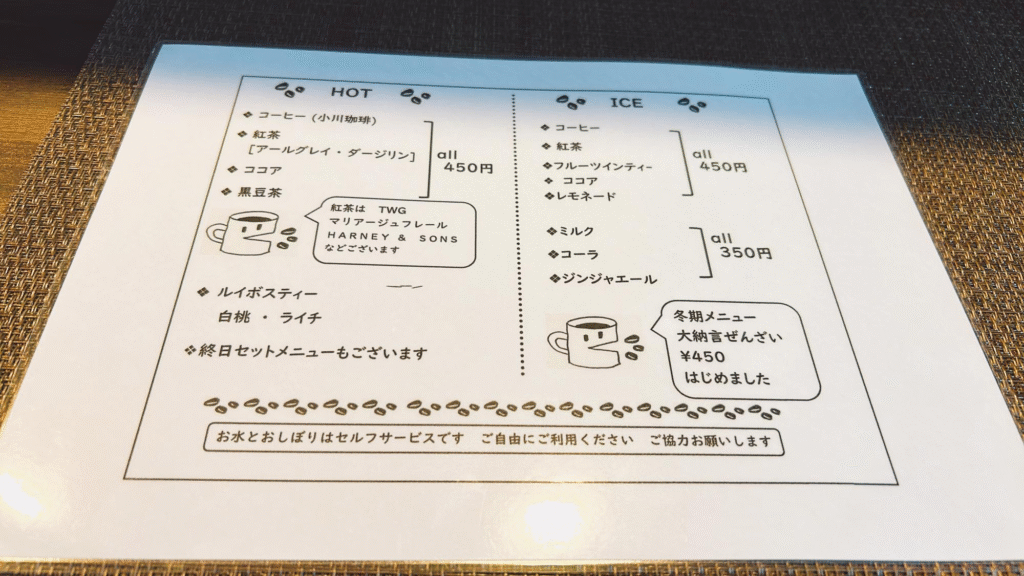 HOT
❖ コーヒー (小川珈琲)
❖ 紅茶
[アールグレイ・ダージリン]
❖ ココア
❖ 黒豆茶
all
450円
紅茶は TWG
マリアージュフレール
HARNEY & SONS
などございます
❖ ルイボスティー
白桃 ・ ライチ
❖終日セットメニューもございます
ICE
❖ コーヒー
❖ 紅茶
❖フルーツインティー
❖ ココア
❖レモネード
all
450円
❖ミルク
❖コーラ
❖ジンジャエール
all
350円
冬期メニュー
大納言ぜんざい
¥450
はじめました
お水とおしぼりはセルフサービスです ご自由にご利用ください ご協力お願いします